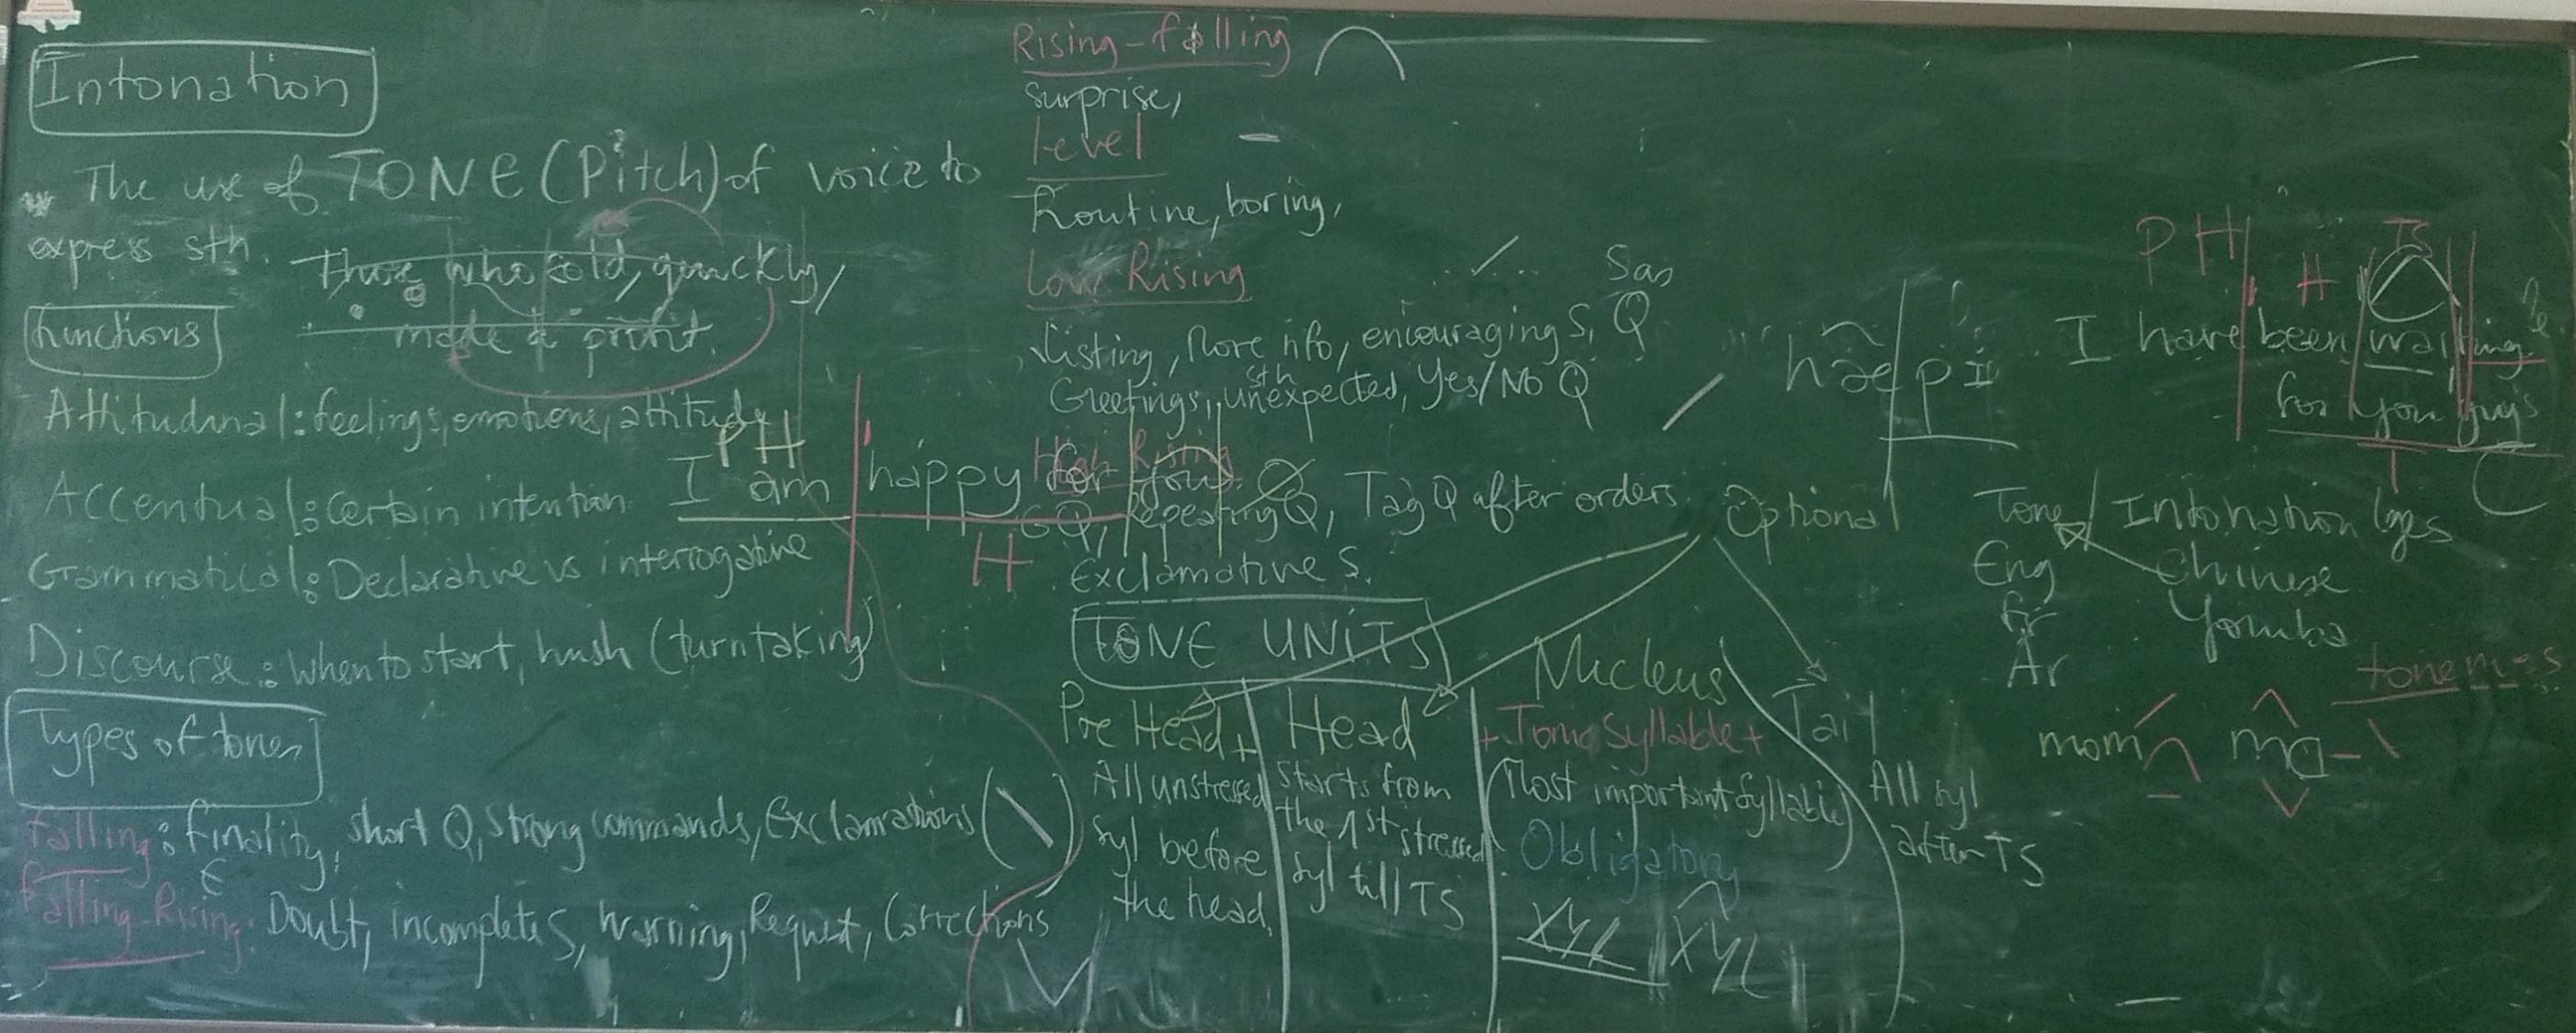 Intonation
The use of TONE (Pitch) of voice to
express sth.
Those who sold, quickly,
made a profit.
Functions
Attitudinal: feelings, emotions, attitude
Accentual: Certain intention
Grammatical: Declarative vs interrogative
Discourse: When to start, hush (turn taking)
Types of tones
Falling: finality, short Q, strong commands, Exclamations (\)
Falling-Rising: Doubt, incomplete S, Warning, Request, Corrections
PH
I am happy for you.
H
Rising-falling
surprise,
level
Routine, boring,
Low Rising
Listing, More info, encouraging S, Q
Greetings, sth unexpected, Yes/No Q
High Rising
Repeating Q, Tag Q after orders
Exclamative S.
TONE UNITS
Optional
Pre Head +
All unstressed
syl before
the head.
Head
Starts from
the 1st stressed
syl till TS
Nucleus
+ Tonic Syllable +
(Most important syllable)
Obligatory
XYL XYL
Tail
All syl
after TS
hæpɪ
PH H TS
I have been waiting
for you guys
T
Tone / Intonation lges
Eng Chinese
Fr Yoruba
Ar
tonemes
mom ma